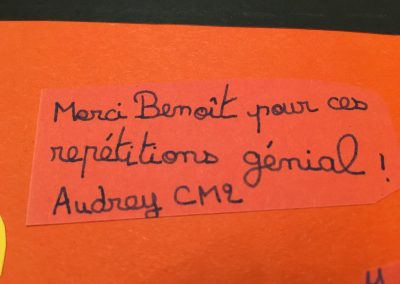 Merci Benoît pour ces
repétitions génial !
Audrey CM2